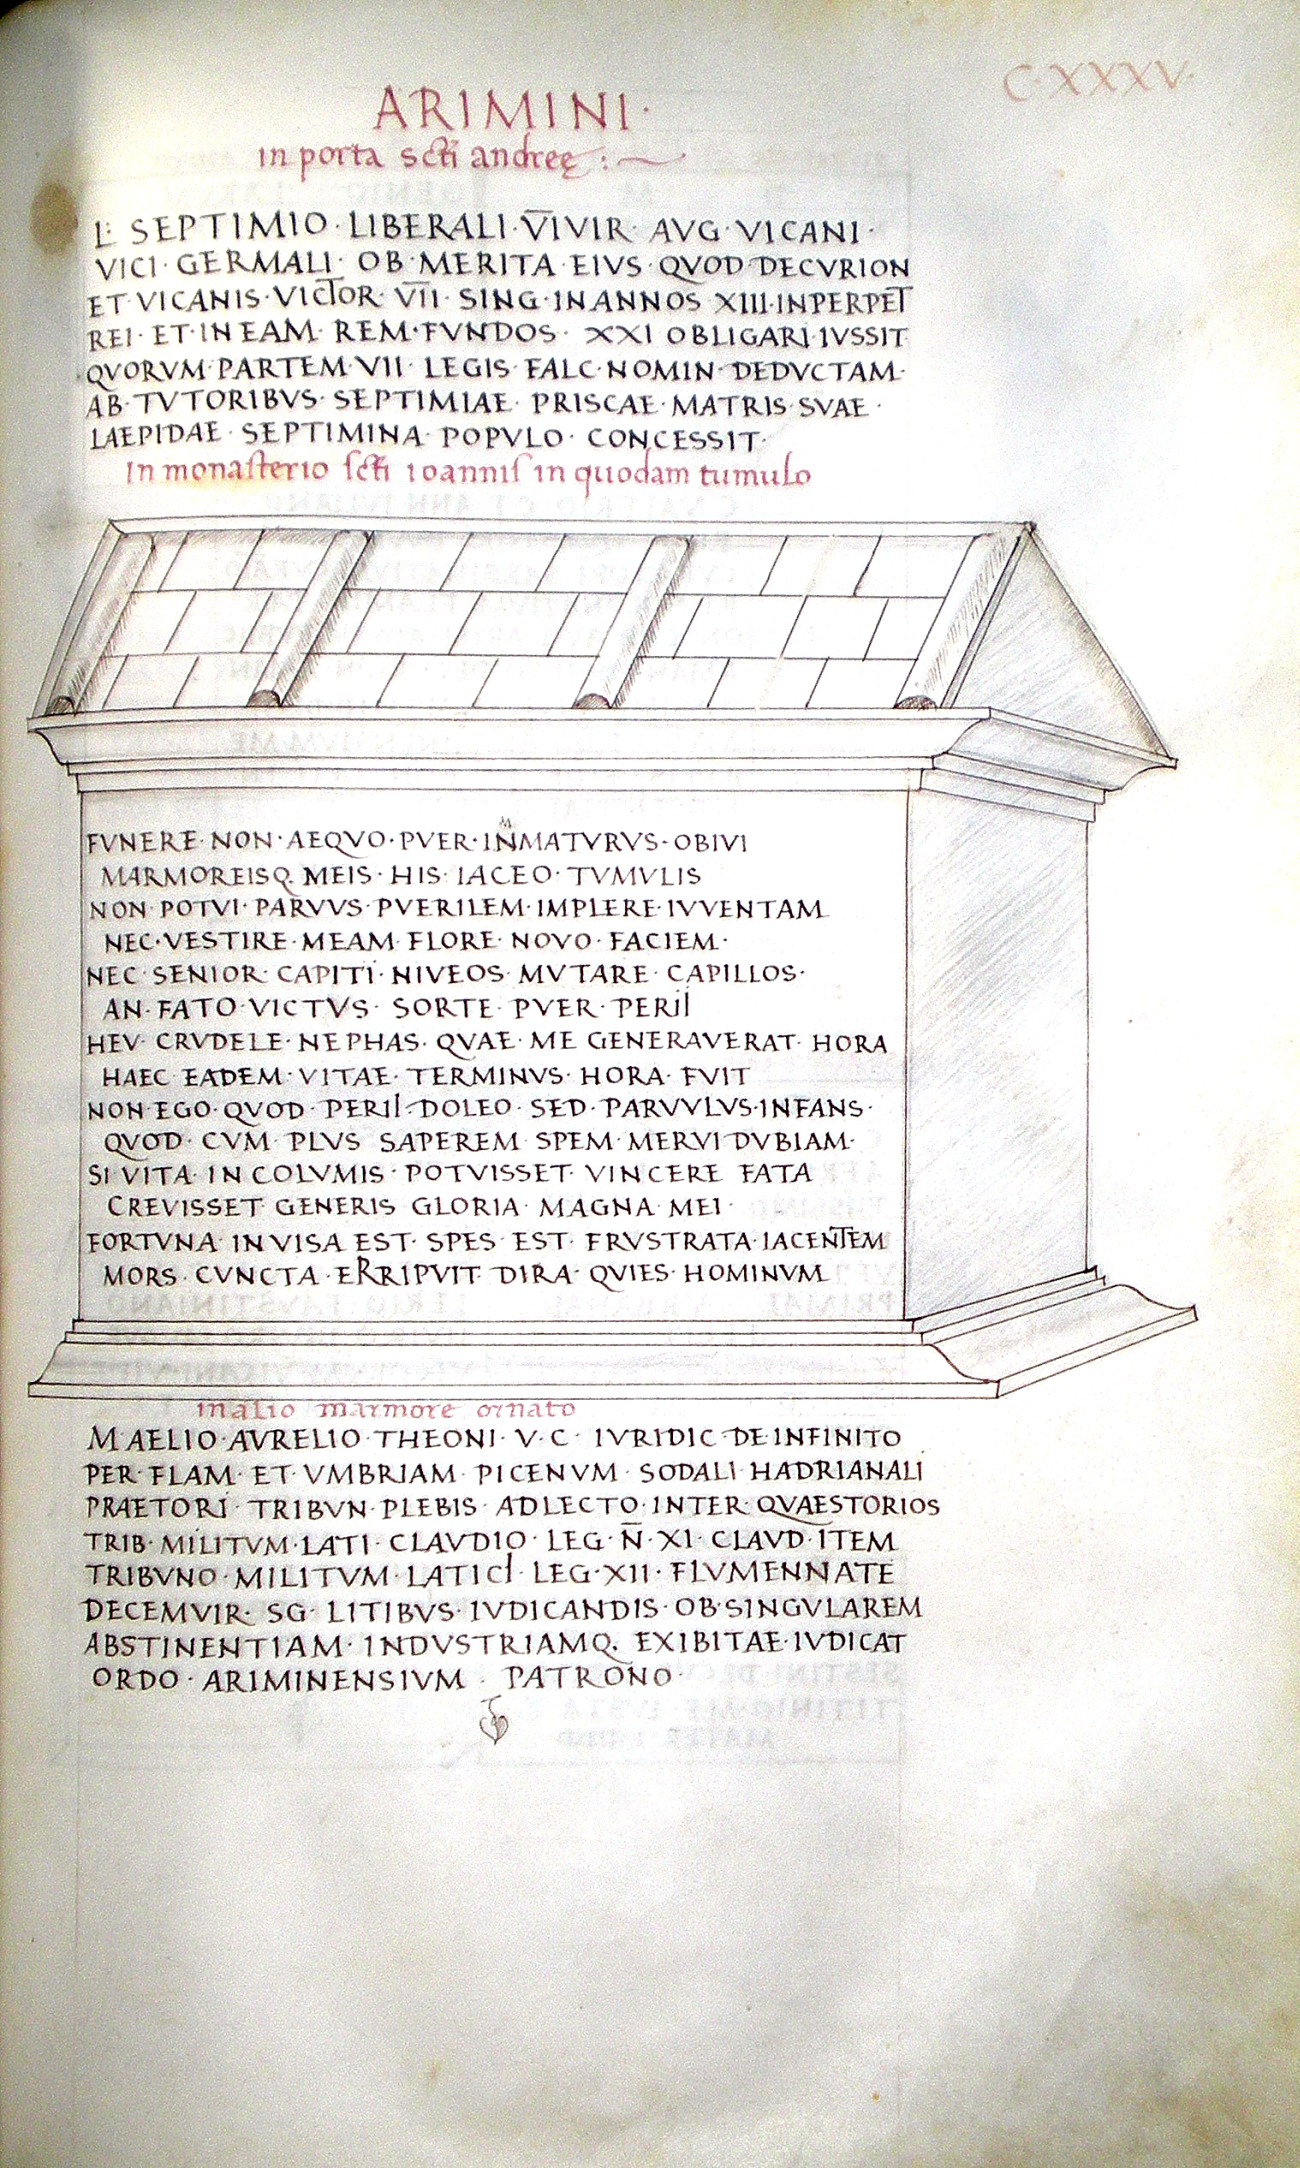 C·XXXV·
ARIMINI·
in porta scti andreę :~
L· SEPTIMIO· LIBERALI· V̅I̅VIR· AVG· VICANI·
VICI· GERMALI· OB· MERITA· EIVS· QVOD· DECVRION
ET VICANIS· VICTOR· V̅I̅I· SING· IN ANNOS XIII· INPERPET
REI· ET· IN EAM· REM· FVNDOS· XXI OBLIGARI· IVSSIT
QVORVM· PARTEM· VII· LEGIS· FALC· NOMIN· DEDVCTAM·
AB· TVTORIBVS· SEPTIMIAE· PRISCAE· MATRIS· SVAE·
LAEPIDAE· SEPTIMINA· POPVLO· CONCESSIT·
In monasterio scti ioannis in quodam tumulo
FVNERE· NON· AEQVO· PVER· INMATVRVS· OBIVI
MARMOREISQ. MEIS· HIS· IACEO· TVMVLIS
NON· POTVI· PARVVS· PVERILEM· IMPLERE· IVVENTAM
NEC· VESTIRE· MEAM· FLORE· NOVO· FACIEM·
NEC· SENIOR· CAPITI· NIVEOS· MVTARE· CAPILLOS·
AN· FATO· VICTVS· SORTE· PVER· PERII
HEV· CRVDELE· NEPHAS· QVAE· ME GENERAVERAT· HORA
HAEC· EADEM· VITAE· TERMINVS· HORA· FVIT
NON· EGO· QVOD· PERII· DOLEO· SED· PARVVLVS· INFANS·
QVOD· CVM· PLVS SAPEREM SPEM· MERVI DVBIAM·
SI VITA· IN COLVMIS· POTVISSET· VINCERE FATA
CREVISSET· GENERIS GLORIA· MAGNA· MEI·
FORTVNA· INVISA EST· SPES· EST· FRVSTRATA· IACENTEM
MORS· CVNCTA· ERRIPVIT· DIRA· QVIES· HOMINVM
in alio marmore ornato
M AELIO· AVRELIO· THEONI· V· C· IVRIDIC· DE· INFINITO
PER· FLAM· ET· VMBRIAM· PICENVM· SODALI· HADRIANALI
PRAETORI· TRIBVN· PLEBIS· ADLECTO· INTER· QVAESTORIOS
TRIB· MILITVM· LATI· CLAVDIO· LEG· N̅· XI· CLAVD· ITEM
TRIBVNO· MILITVM· LATICI· LEG· XII· FLVMENNATE
DECEMVIR· SG· LITIBVS· IVDICANDIS· OB· SINGVLAREM
ABSTINENTIAM· INDVSTRIAMQ. EXIBITAE· IVDICAT
ORDO· ARIMINENSIVM· PATRONO·